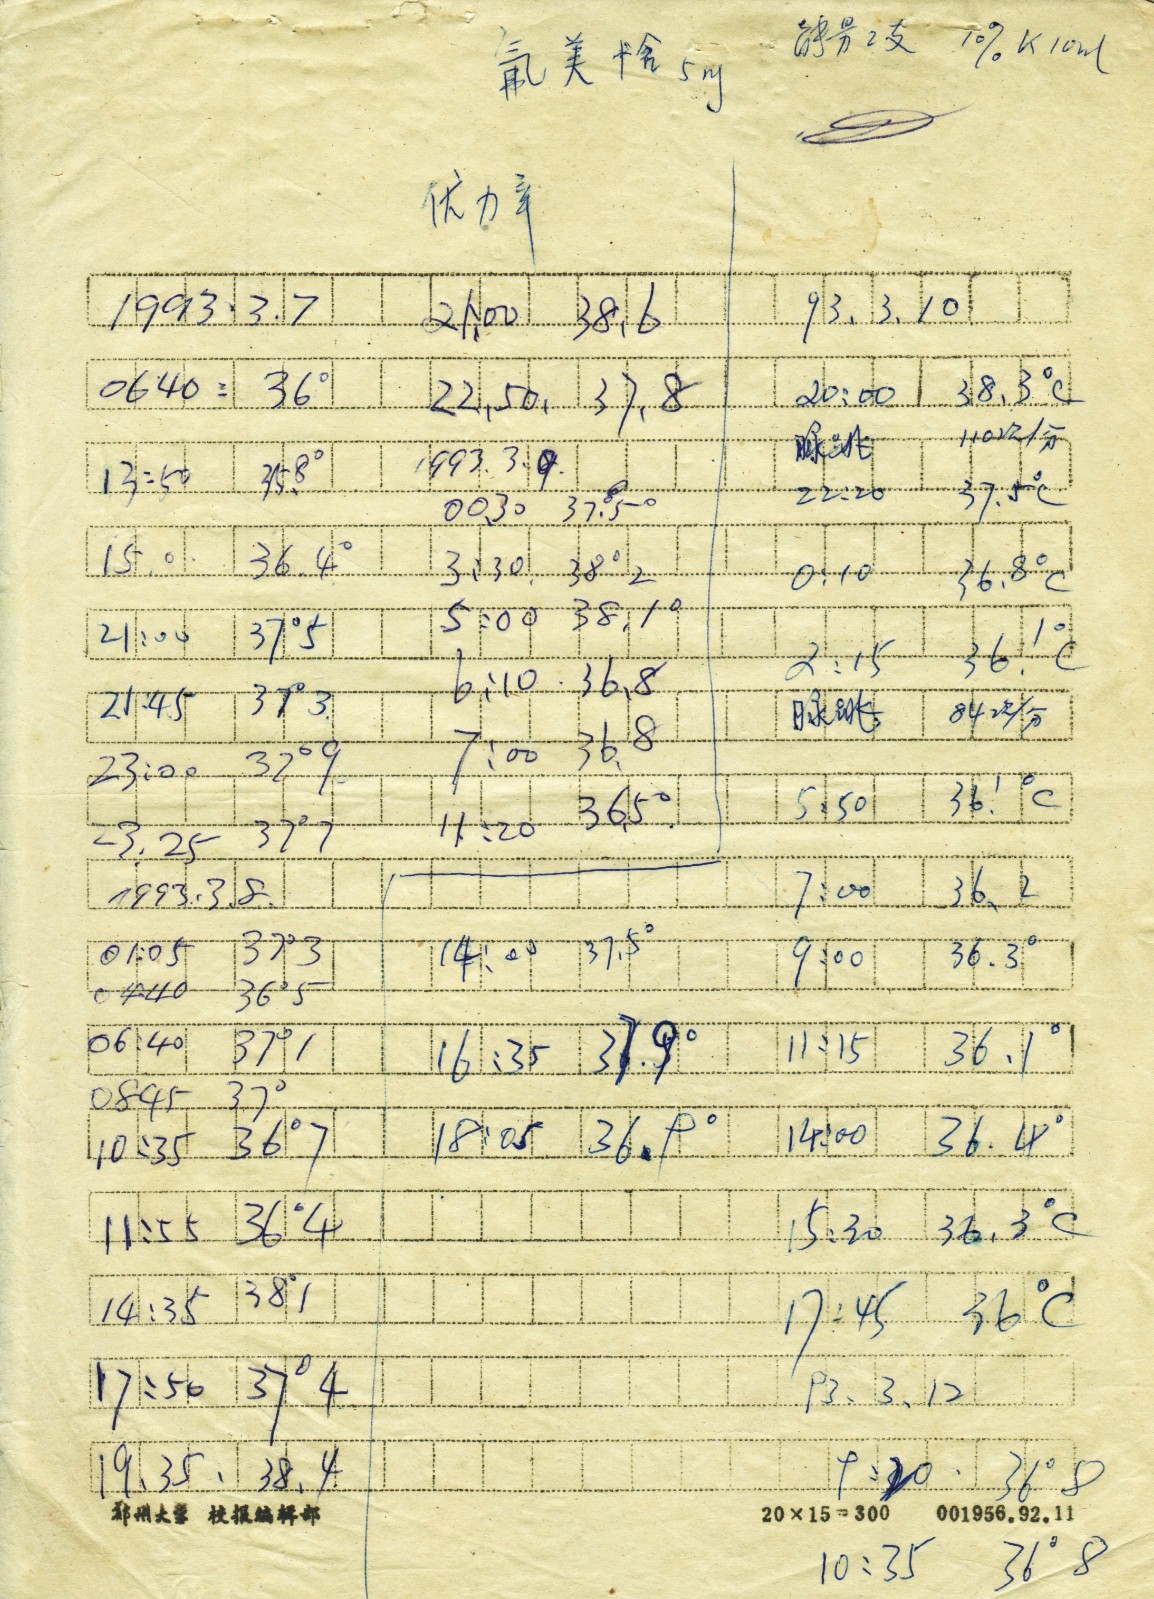 氟美松 5mg 能量2支 10% K 10ml
优力辛
1993.3.7
0640: 36°
13:50 35.8°
15.0 36.4°
21:00 37°5
21:45 37°3
23:00 37°9
23.25 37°7
1993.3.8.
01:05 37°3
0440 36°5
06:40 37°1
0845 37°
10:35 36°7
11:55 36°4
14:35 38°1
17:50 37°4
19.35. 38.4
21:00 38.6
22.50. 37.8
1993.3.9.
00.30 37.5°
3:30. 38°2
5:00 38.1°
6:10. 36.8
7:00 36.8
11:20 36.5°
14:00 37.5°
16:35 37.9°
18:05 36.9°
93.3.10
20:00 38.3°C
脉跳 110次/分
22:20 37.5°C
0:10 36.8°C
2:15 36.1°C
脉跳 84次/分
5:50 36.1°C
7:00 36.2
9:00 36.3°
11:15 36.1°
14:00 36.4°
15:30 36.3°C
17:45 36°C
93.3.12
9:20. 36°8
郑州大学 校报编辑部 20×15=300 001956.92.11
10:35 36°8